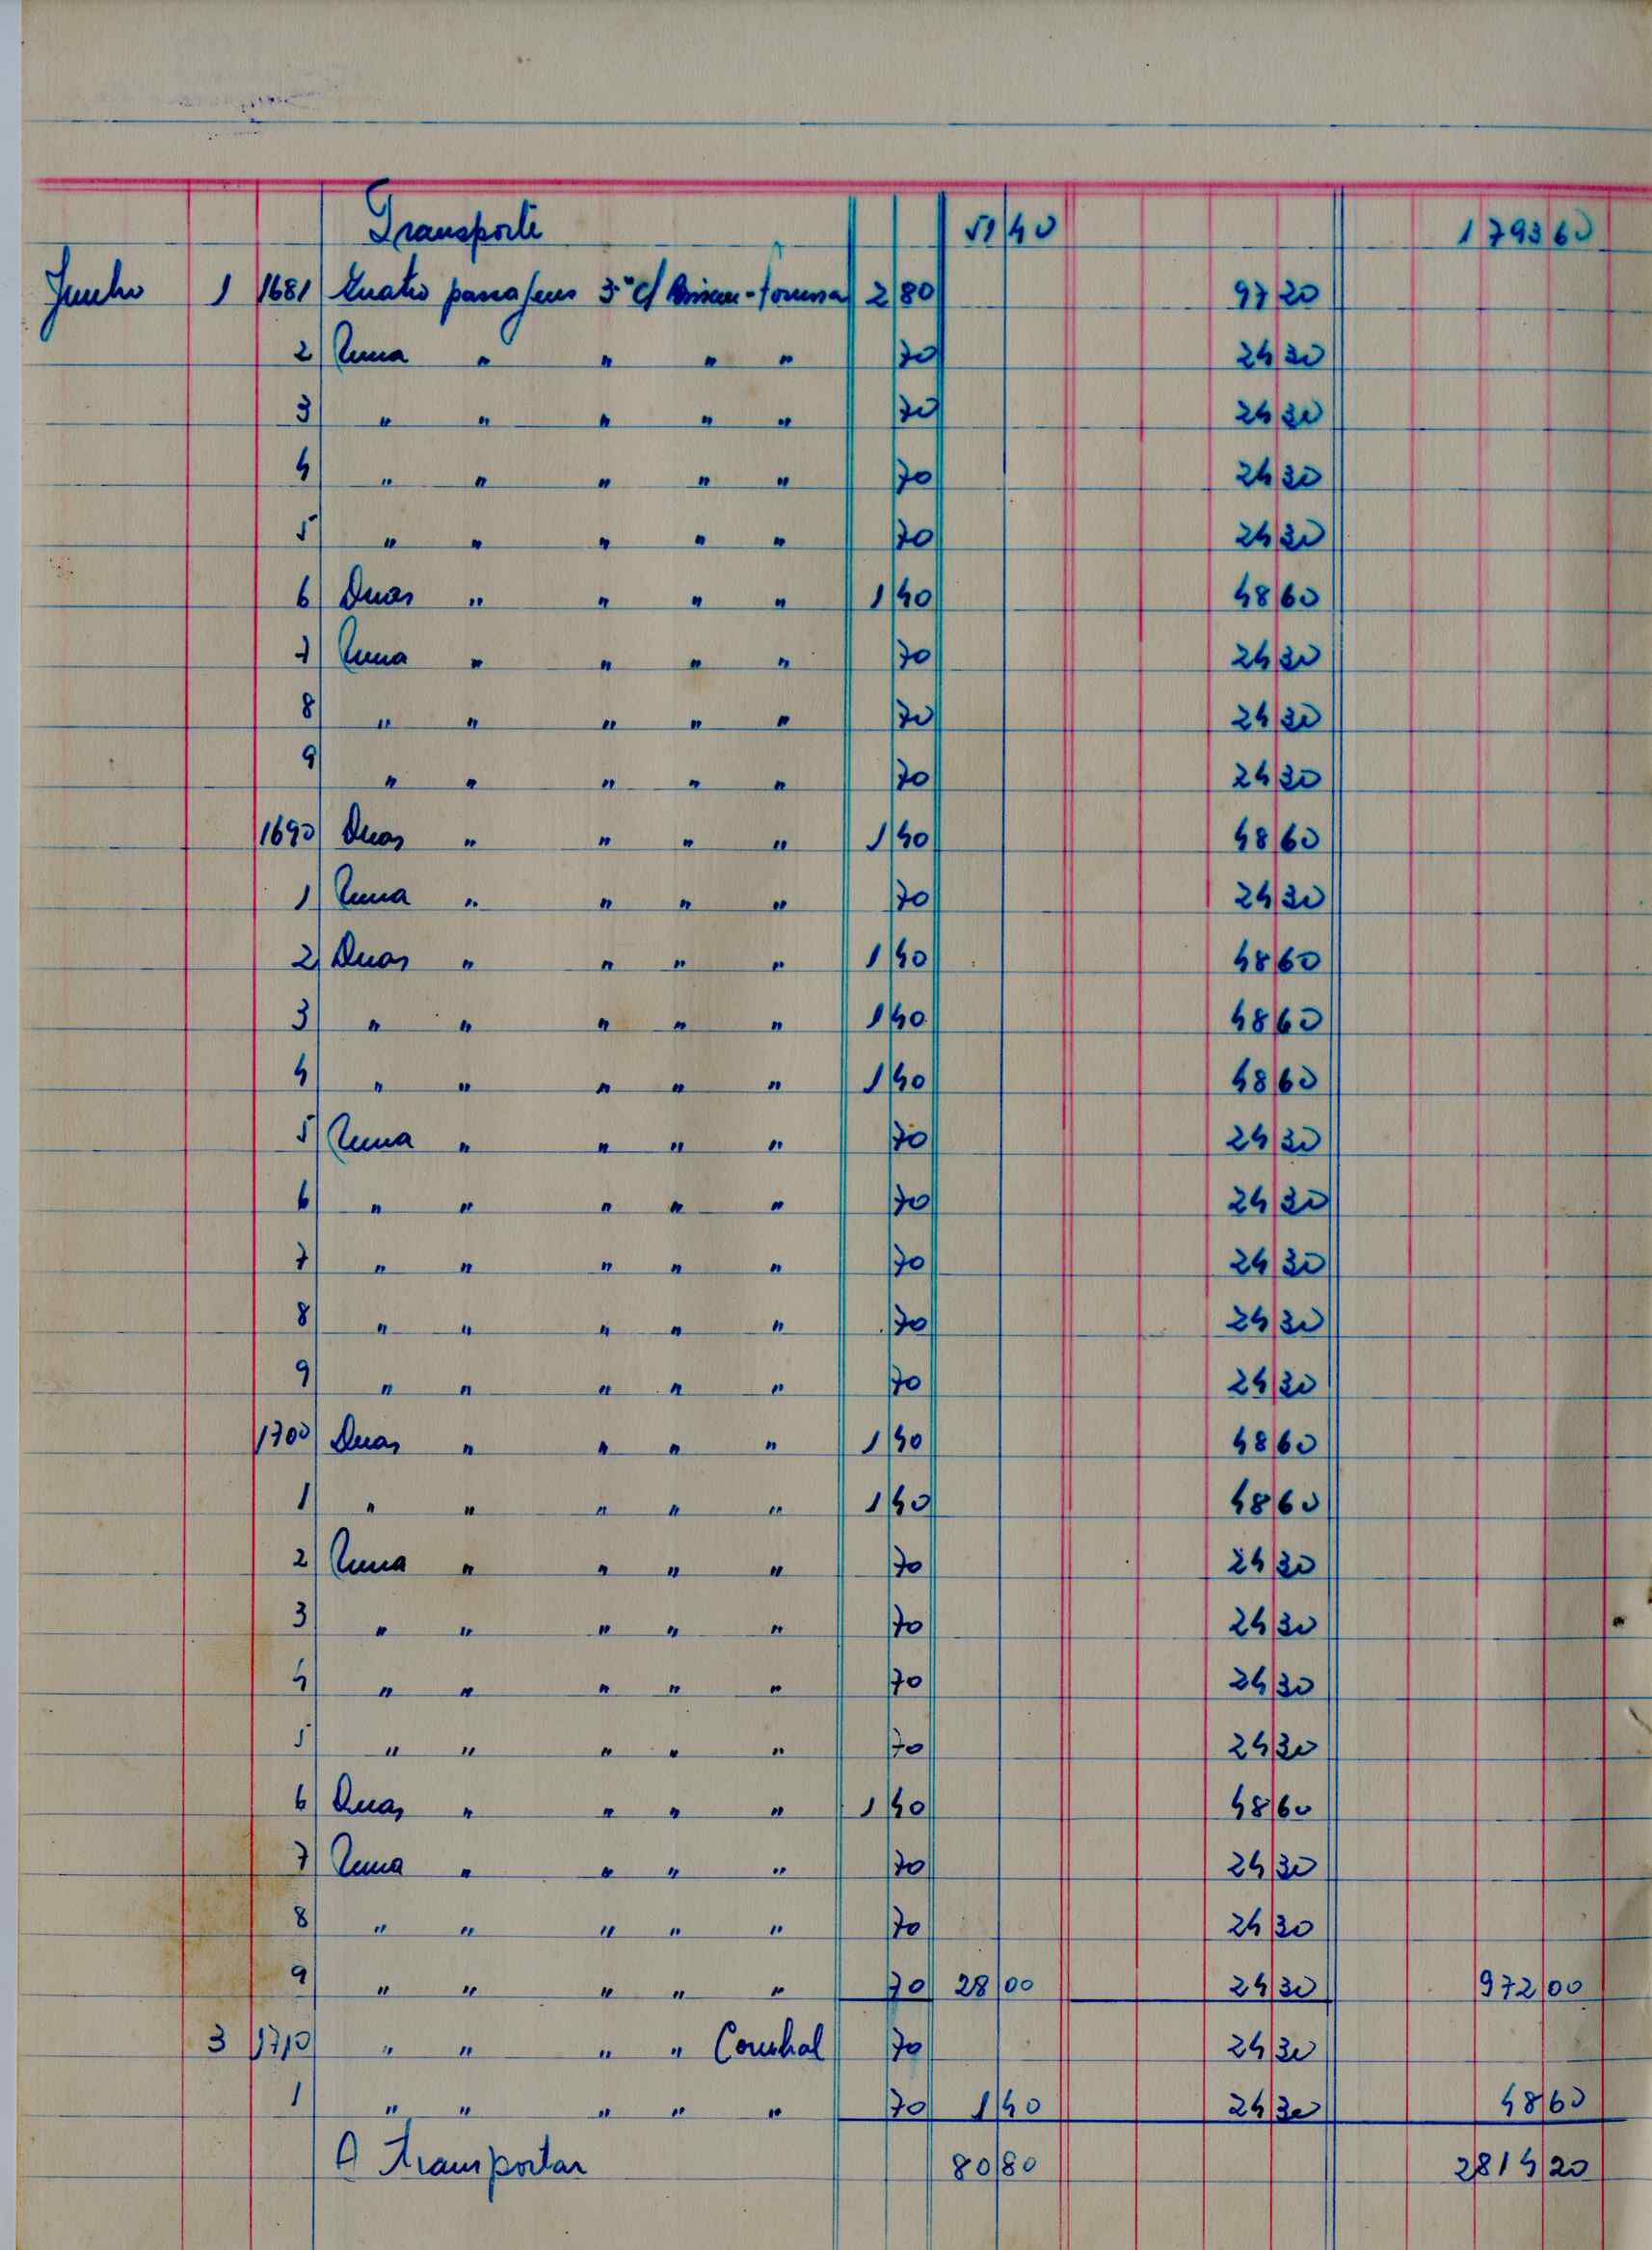 Transporte 51 40 1793 60
Junho 1 1681 Quatro passagens 3ª c/ Bissau- 2 80 97 20
2 Uma " " " " 70 24 30
3 " " " " " 70 24 30
4 " " " " " 70 24 30
5 " " " " " 70 24 30
6 Duas " " " " 1 40 48 60
7 Uma " " " " 70 24 30
8 " " " " " 70 24 30
9 " " " " " 70 24 30
1690 Duas " " " " 1 40 48 60
1 Uma " " " " 70 24 30
2 Duas " " " " 1 40 48 60
3 " " " " " 1 40 48 60
4 " " " " " 1 40 48 60
5 Uma " " " " 70 24 30
6 " " " " " 70 24 30
7 " " " " " 70 24 30
8 " " " " " 70 24 30
9 " " " " " 70 24 30
1700 Duas " " " " 1 40 48 60
1 " " " " " 1 40 48 60
2 Uma " " " " 70 24 30
3 " " " " " 70 24 30
4 " " " " " 70 24 30
5 " " " " " 70 24 30
6 Duas " " " " 1 40 48 60
7 Uma " " " " 70 24 30
8 " " " " " 70 24 30
9 " " " " " 70 28 00 24 30 972 00
3 1710 " " " " Comhal 70 24 30
1 " " " " " 70 1 40 24 30 48 60
A Transportar 80 80 2814 20